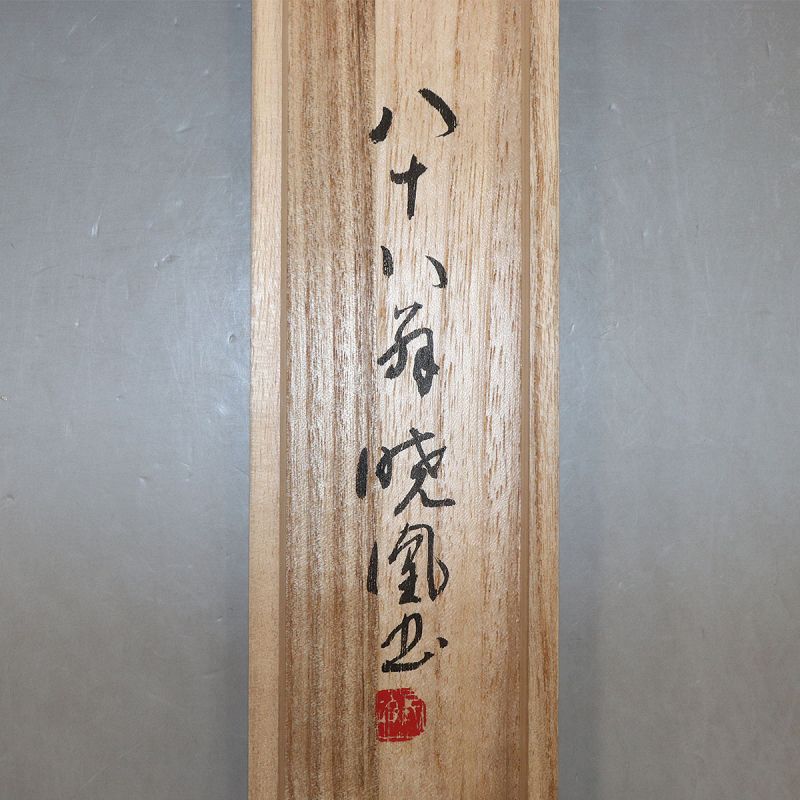 八十八翁暁凰書